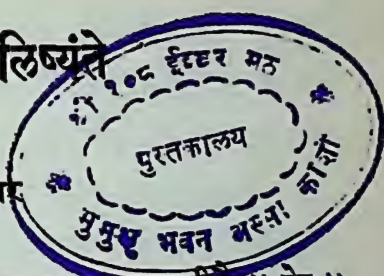 लिष्यंते
१०८ ईश्वर मठ
पुस्तकालय
मुमुक्षु भवन अस्सी काशी